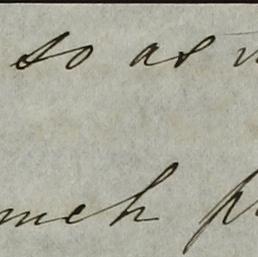 so as
much